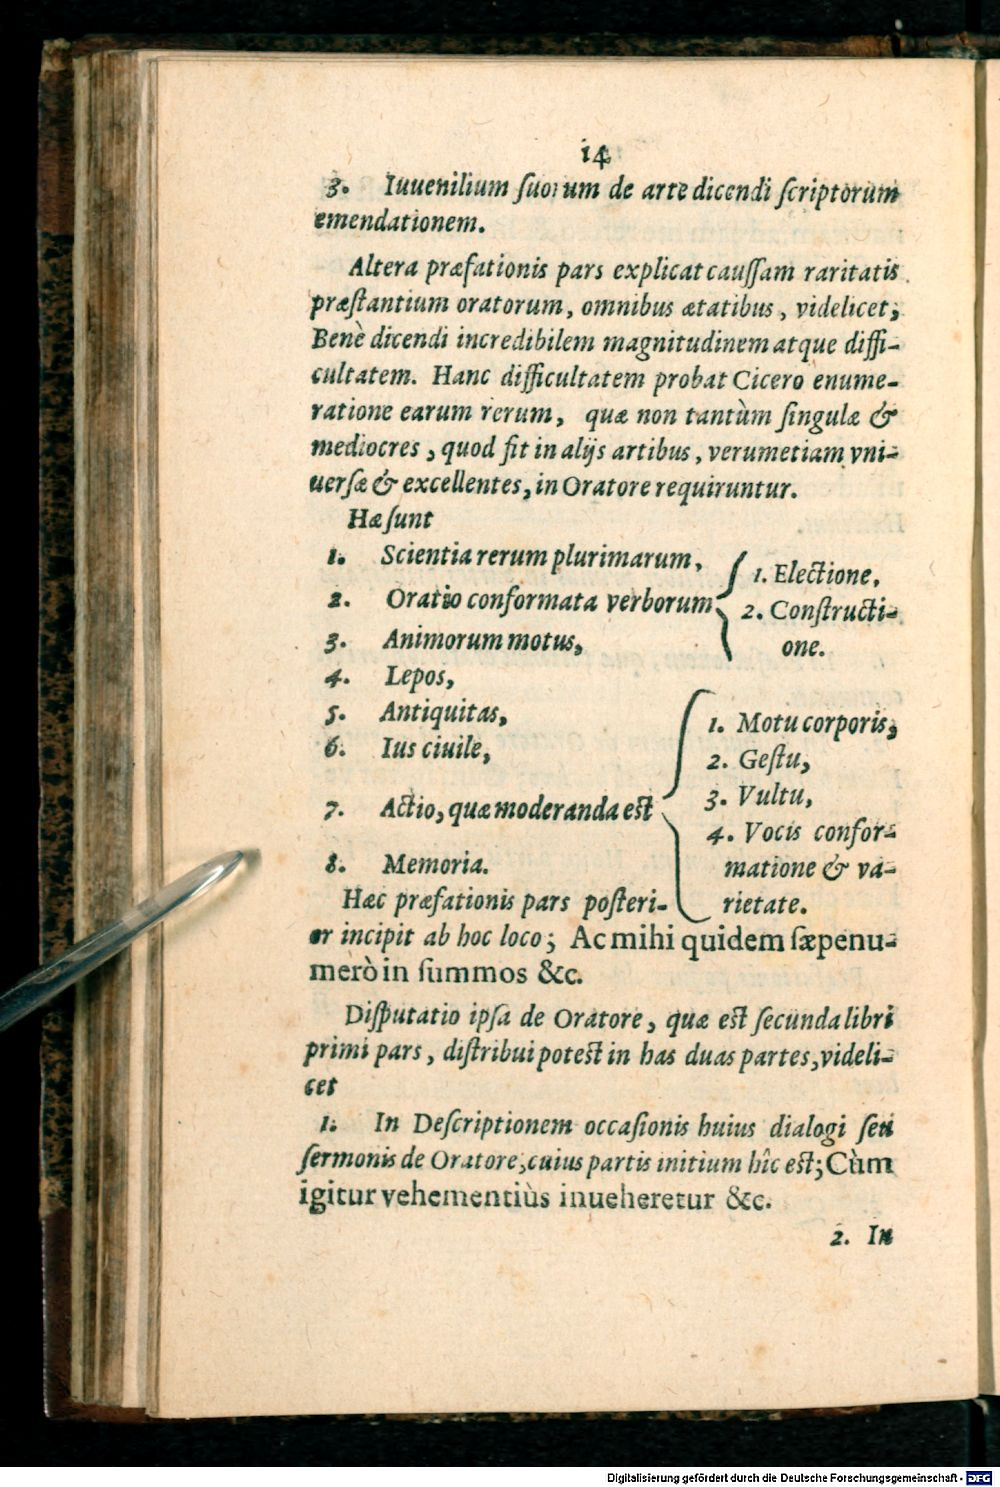 14
3. Iuuenilium ſuorum de arte dicendi ſcriptorum
emendationem.
Altera præfationis pars explicat cauſſam raritatis
præſtantium oratorum, omnibus ætatibus, videlicet;
Benè dicendi incredibilem magnitudinem atque diffi-
cultatem. Hanc difficultatem probat Cicero enume-
ratione earum rerum, quæ non tantùm ſingulæ &
mediocres, quod fit in alijs artibus, verumetiam vni-
uerſæ & excellentes, in Oratore requiruntur.
Hæ ſunt
1. Scientia rerum plurimarum,
2. Oratio conformata verborum
1. Electione,
2. Conſtructi-
one.
3. Animorum motus,
4. Lepos,
5. Antiquitas,
6. Ius ciuile,
7. Actio, quæ moderanda eſt
1. Motu corporis,
2. Geſtu,
3. Vultu,
4. Vocis confor-
matione & va-
rietate.
8. Memoria.
Hæc præfationis pars poſteri-
or incipit ab hoc loco; Ac mihi quidem ſæpenu-
merò in ſummos &c.
Diſputatio ipſa de Oratore, quæ eſt ſecunda libri
primi pars, diſtribui poteſt in has duas partes, videli-
cet
1. In Deſcriptionem occaſionis huius dialogi ſeu
ſermonis de Oratore, cuius partis initium hîc eſt; Cùm
igitur vehementiùs inueheretur &c.
2. In
Digitalisierung gefördert durch die Deutsche Forschungsgemeinschaft - DFG